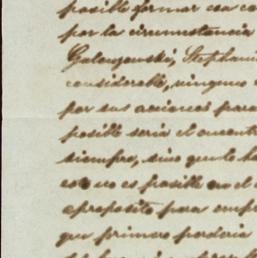 posible formar esa co
por la circunstancia
Galouzowski, Stephani
considerable, ninguno
por sus acciones para
posible seria el encontr
siempre, sino que le ha
eso no es posible no el
aproposito para emp
que primero perderia